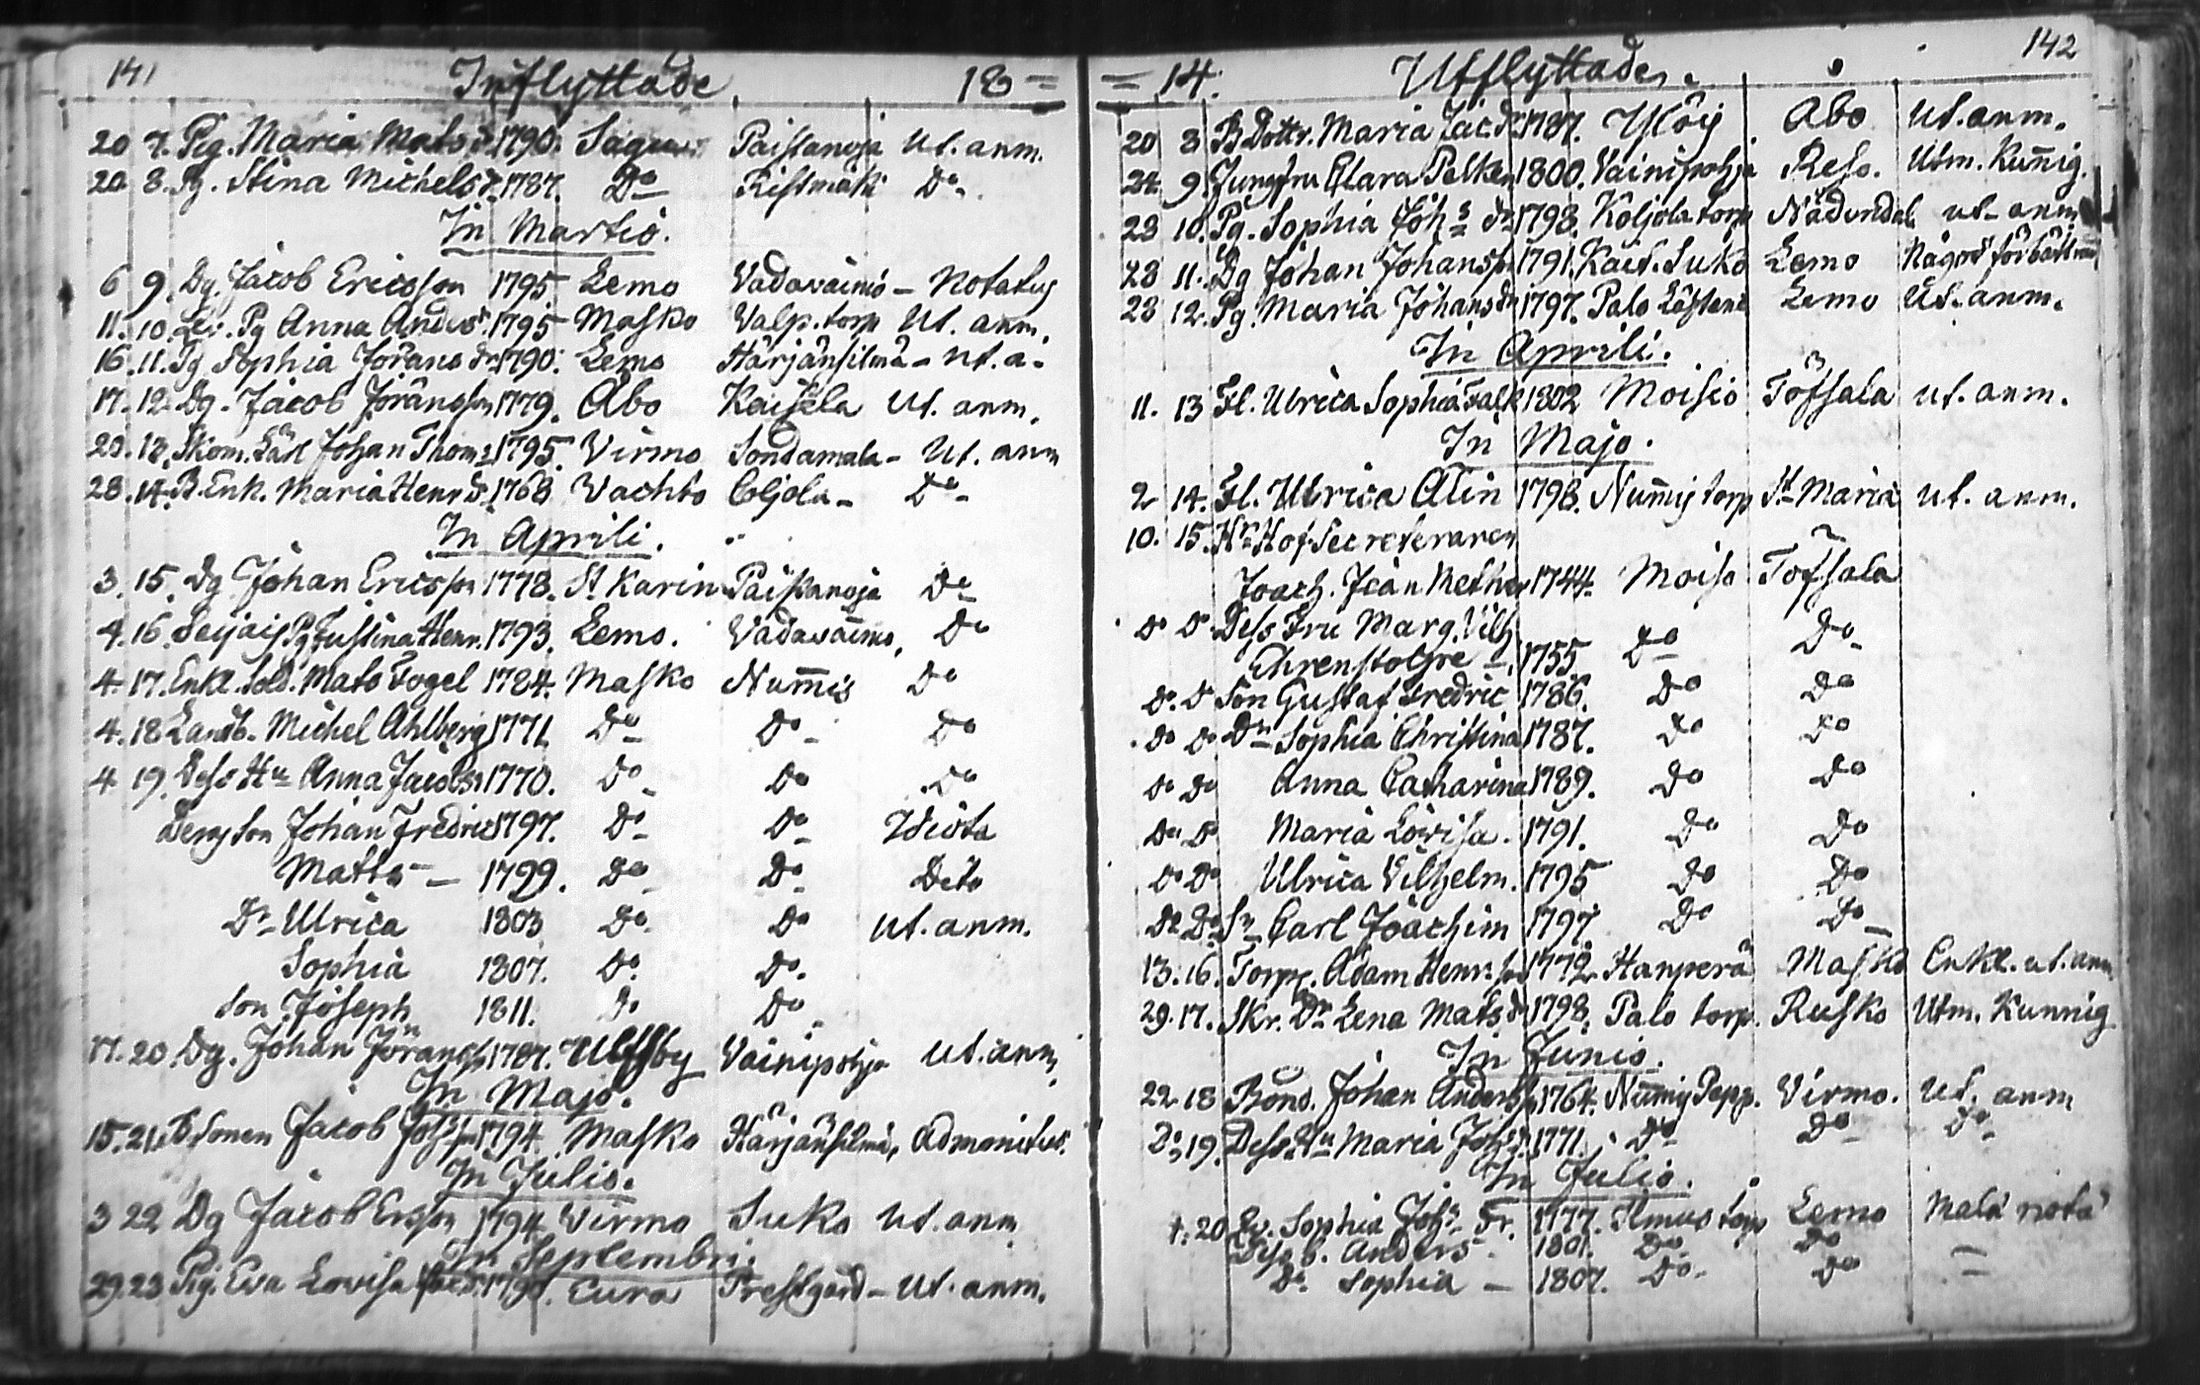 141 Inflyttade 18=
20 7. Pig. Maria Mats dr 1790. Sagu Paistanoja Ut. anm.
20 8. Pg. Stina Michels dr 1787. Do Ristimäki Do.
In Martio.
6 9. Dg. Jacob Ericsson 1795 Lemo Vadavainio - Notatus
11. 10. Pg Anna Anders 1795 Masko Valp. torp Ut. anm.
16. 11. Pg Sophia Jörans dr 1790. Lemo Härjänsilmä - ut. a.
17. 12. Dg. Jacob Jöransson 1779. Åbo Kaisela Ut. anm.
20. 13. Skom. Lärl Johan Thoms 1795. Virmo Sondamala - Ut. anm
28. 14. B. Enk. Maria Henr. dr. 1768 Vachto Coljola - Do
In Aprili.
3. 15. Dg Johan Ericsson 1778. St Karin Paistanoja Do
4. 16. Pg Justina Henr. 1793. Lemo. Vadavainio, Do
4. 17. Enkl. Sold. Mats Fogel 1784. Masko Num̄is Do
4. 18 Landb. Michel Ahlberg 1771 Do Do Do
4 19. Dess Hu Anna Jacobs 1770. Do Do Do
Deras Son Johan Fredric 1797. Do Do Idiota
Matts - 1799. Do Do Dito
Dr Ulrica 1803 Do Do ut. anm.
Sophia 1807. Do Do.
Son Joseph 1811. Do Do
17. 20. Dg. Johan Jöransson 1787. Ulfsby Vainipohja Ut. anm,
In Majo.
15. 21. B Sonen Jacob Johsson 1794. Masko Härjänsilmä, Admonitus.
In Julio.
3 22 Dg Jacob Ersson 1794. Virmo Suko Ut. anm
In Septembri.
29. 23 Pig. Eva Lovisa 1790. Eura Prestgård - Ut. anm.
= 14. Utflyttade. 142
20 8 B Dottr. Maria Jac. dr 1787. Åbo Ut. anm.
9. Jungfru Clara 1800. Vainipohja Reso. Utm. Kun̄ig.
28 10. Pg. Sophia Johs dr 1798. Koljola torp Nådendal ut. anm
28 11. Dg Johan Johansson 1791. Suko Lemo Något förbättrad
28 12. Pg. Maria Johans dr 1797. Palo Lemo Ut. anm.
In Aprili.
11. 13 Fl. Ulrica Sophia Falk 1802 Moisio Töfsala ut. anm.
In Majo.
2 14. Fl. Ulrica Alin 1798. Num̄is torp St Maria ut. anm.
10. 15. Hr Hof Secreteraren
Joach. Jean Mether 1744. Moisio Tofsala
Do Do Dess Fru Marg. Vilh.
Ehrenstolpe 1755 Do Do
Do. Do Son Gustaf Fredric 1786. Do Do
Do Do Dr Sophia Christina 1787. Do Do
Do Do Anna Catharina 1789. Do Do
Do Do Maria Lovisa. 1791. Do Do
Do Do Ulrica Vilhelm. 1795 Do Do
Do Do Sn Carl Joachim 1797 Do Do
13. 16. Torpp. Adam Henr. son 1772 Hanperä Masko Enkl. ut. anm
29. 17. Skr. Dr Lena Mats dr 1798. Palo torp. Rusko Utm. Kunnig
In Junio.
22 18 Bond. Johan Andersson 1764. Num̄is Pepp. Virmo. Ut. anm
Do 19. Dess Hu Maria Johs dr. 1771. Do Do Do
In Julio.
1. 20 Sophia Johs 1777. Ilmus torp Lemo Mala nota
Dess b. Anders 1801. Do Do
Dr. Sophia - 1807. Do Do =